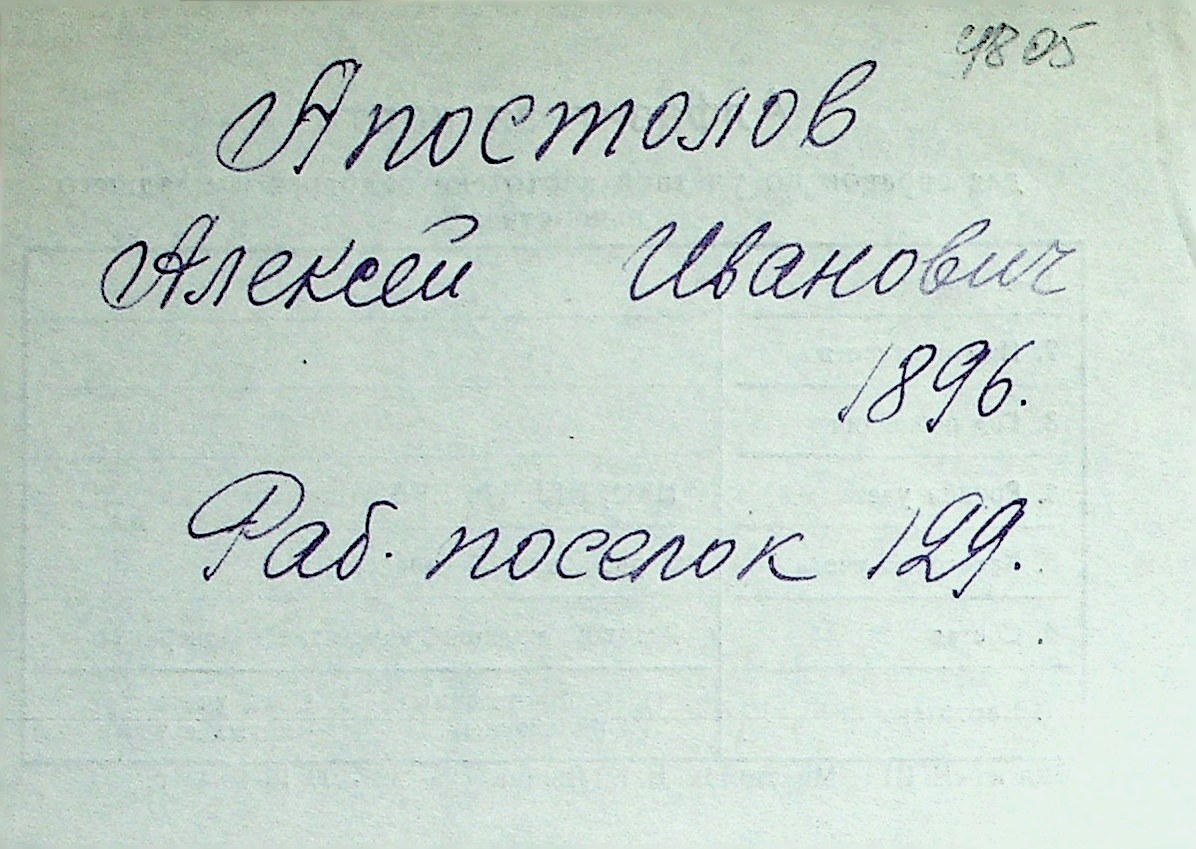 4805
Апостолов
Алексей Иванович
1896.
Раб. поселок 129.